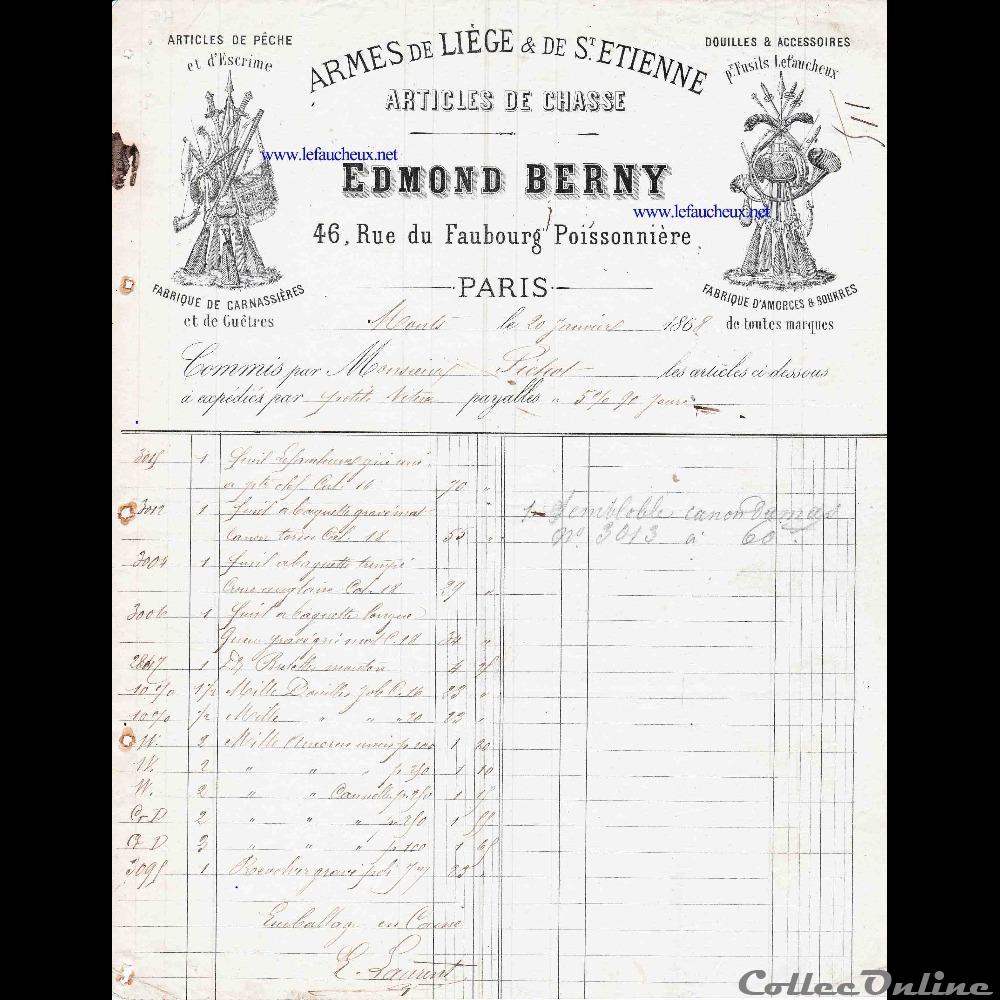 ARTICLES DE PÊCHE
et d'Escrime
ARMES DE LIÈGE & DE ST. ETIENNE
ARTICLES DE CHASSE
DOUILLES & ACCESSOIRES
pr. Fusils Lefaucheux
www.lefaucheux.net
EDMOND BERNY
www.lefaucheux.net
46, Rue du Faubourg Poissonnière
PARIS
FABRIQUE DE CARNASSIÈRES
et de Guêtres
FABRIQUE D'AMORCES & BOURRES
de toutes marques
le 20 Janvier 1868
Commis par Monsieur Pichot les articles ci dessous
à expédiés par petite Vitesse payables à 5% 90 jours
1 fusil Lefaucheux gris uni
Cal. 16 70 "
3012 1 fusil a baguette gravé mat
Canon tordu Cal. 18 55 "
1 Semblable canon Damas
No. 3013 à 60
3004 1 fusil a baguette trempé
Crosse anglaise Cal. 18 29 "
3006 1 fusil a baguette longue
gravé gris mat C. 18 34 "
1
10% 1/2 Mille Douilles Job C. 16 23 "
10% 1/2 Mille " " " 20 23 "
W. 2 Mille Amorces p. 100 1 20
W. 2 " " " p. 250 1 10
W. 2 " " Cannelés p. 250 1 15
C&D 2 " " " p. 250 1
C&D 3 " " " p. 100 1 65
3095 1 Revolver gravé poli 7m 23 "
Emballage en Caisse
E. Laurent
CollecOnline